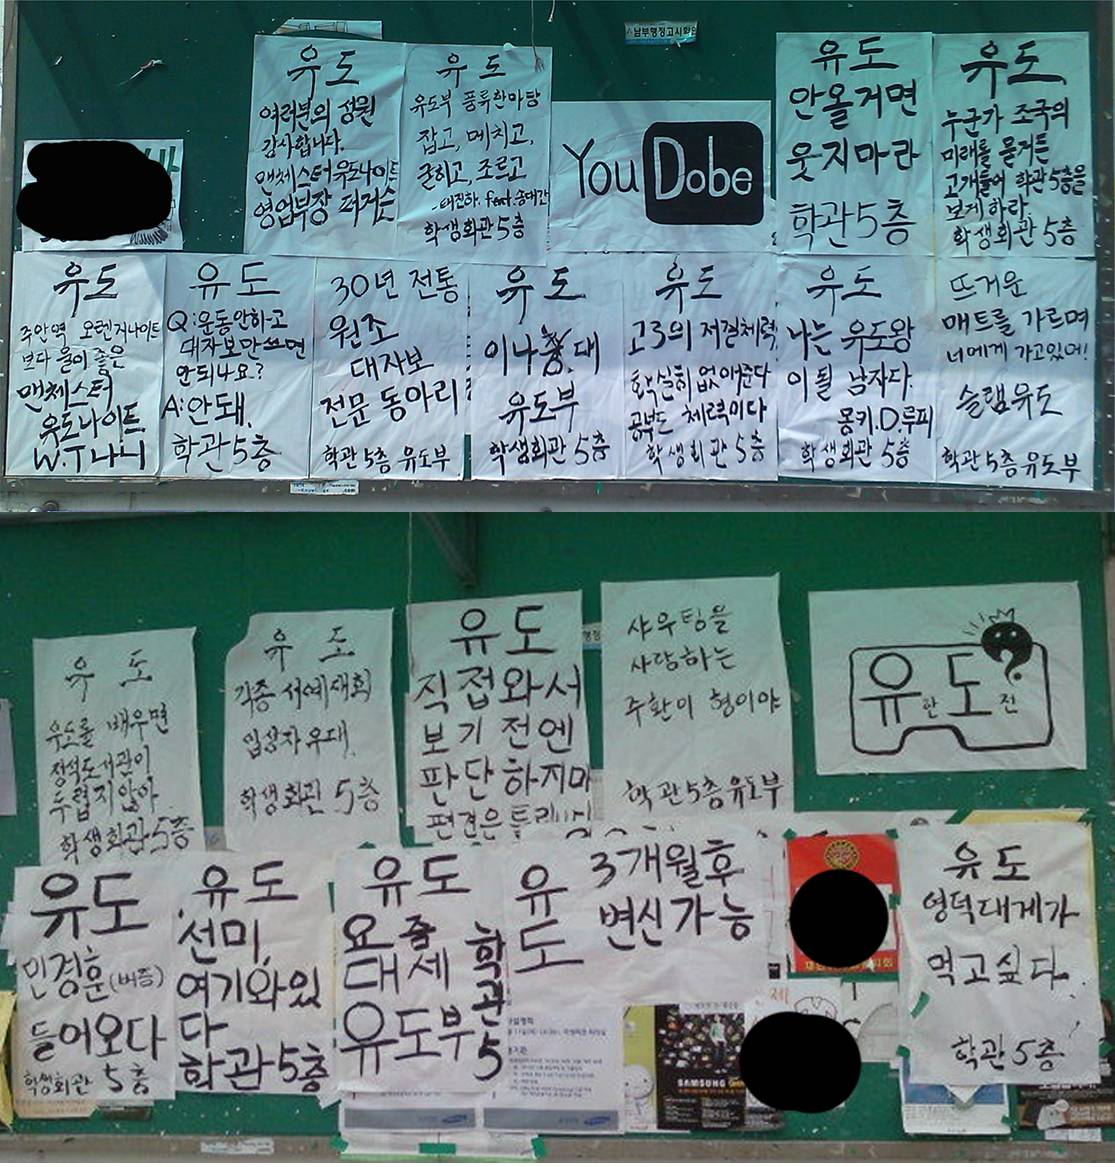 남부행정고시학원
유도
여러분의 성원
감사합니다.
맨체스터 유도나이트
영업부장 퍼거슨
유도
유도부 풍류한마당
잡고, 메치고,
굳히고, 조르고
feat. 송대관
학생회관 5층
You Dobe
유도
안올거면
웃지마라
학관 5층
유도
누군가 조국의
미래를 묻거든
고개들어 학관 5층을
보게 하라
학생회관 5층
유도
주안역 오렌지나이트
보다 물이 좋은
맨체스터
유도나이트
W.T 나니
유도
Q: 운동안하고
대자보만 쓰면
안되나요?
A: 안돼.
학관 5층
30년 전통
원조
대자보
전문 동아리
학관 5층 유도부
유도
이나 대
유도부
학생회관 5층
유도
고3의 저질체력
확실히 없애준다
공부도 체력이다
학생회관 5층
유도
나는 유도왕
이 될 남자다.
몽키.D.루피
학생회관 5층
뜨거운
매트를 가르며
너에게 가고있어!
슬램유도
학관 5층 유도부
유도
유도를 배우면
정석도서관이
두렵지않아
학생회관 5층
유도
각종 서예대회
입상자 우대.
학생회관 5층
유도
직접와서
보기 전엔
판단하지마
편견은
샤우팅을
사랑하는
주환이 형이야
학관 5층 유도부
유한도전
유도
민경훈(버즈)
들어오다
학생회관 5층
유도
선미,
여기와있
다
학관 5층
유도
요즘
대세
유도부
학관 5
유도
3개월후
변신가능
SAMSUNG
유도
영덕대게가
먹고싶다.
학관 5층